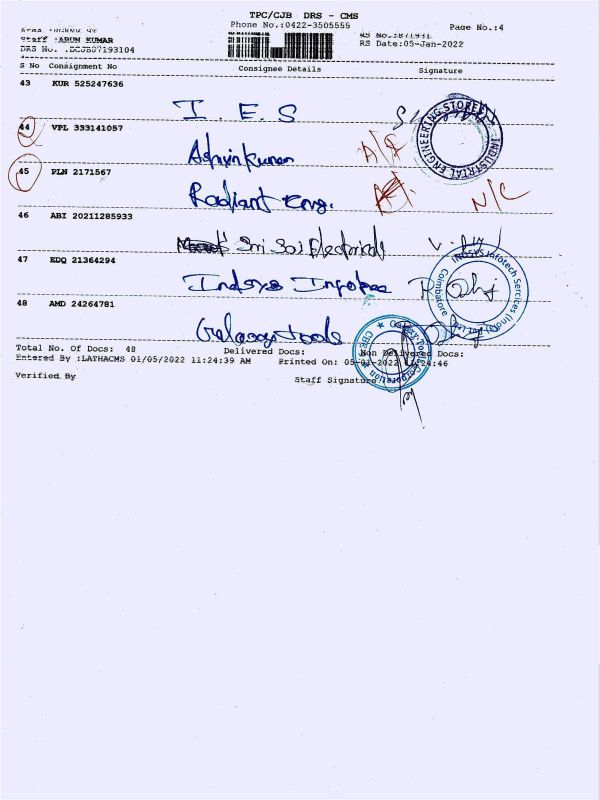 TPC/CJB DRS - CMS
Phone No.:0422-3505555
Page No.:4
Staff :ARUN KUMAR
DRS No. .DCJB87193104
RS Date:05-Jan-2022
S No Consignment No Consignee Details Signature
43 KUR 525247636
I. E. S
INDUSTRIAL ENGINEERING STORES
44 VPL 333141057
Ashvin Kumar
45 PLN 2171567
Radiant Eng. N/C
46 ABI 20211285933
Sri Sai Electricals
47 EDQ 21364294
Indsys Infotec
INDSYS Infotech Services (India) Coimbatore
48 AMD 24264781
Galaxy tools
Galaxy Tools Corporation CBE
Total No. Of Docs: 48 Delivered Docs: Non Delivered Docs:
Entered By :LATHACMS 01/05/2022 11:24:39 AM Printed On: 05-01-2022 11:24:46
Verified By Staff Signature